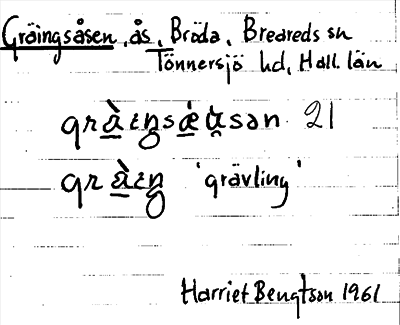 Gräingsåsen, ås, Bröda, Breareds sn
Tönnersjö hd, Hall. län
gràengsǽa̯sən 21
gràeng 'grävling'
Harriet Bengtson 1961